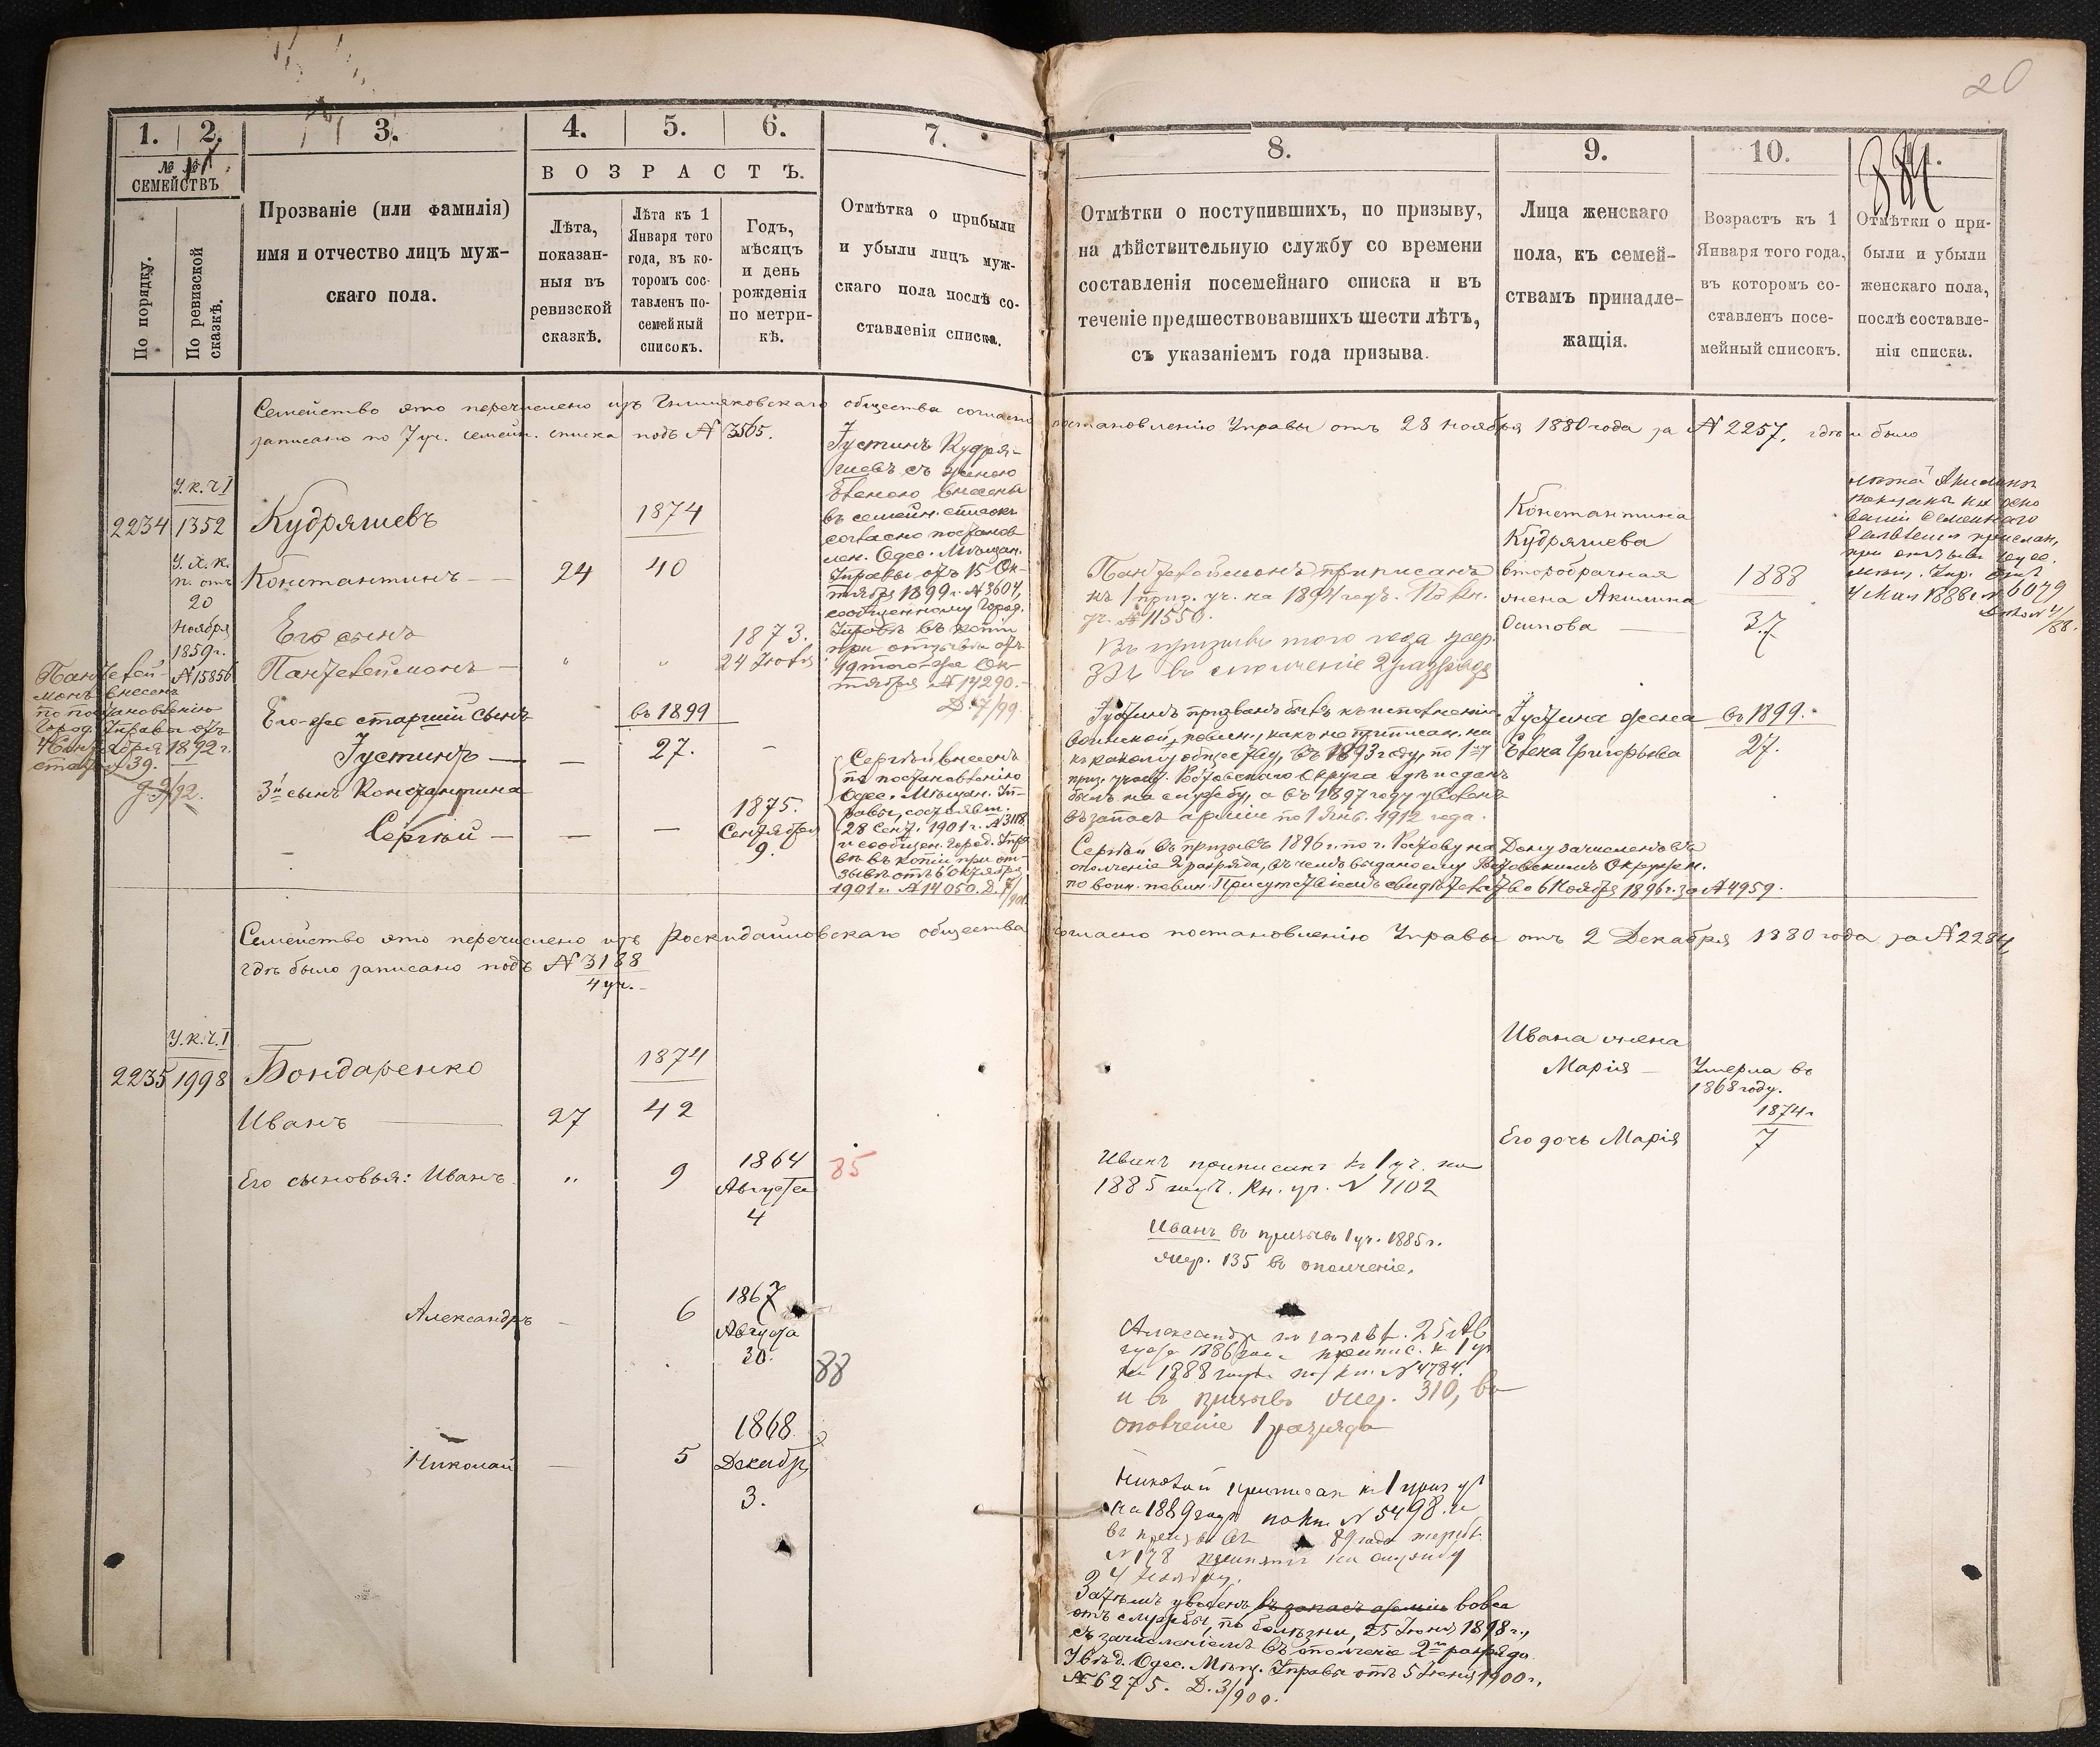 20
1. 2. 3. 4. 5. 6. 7.
№ №
СЕМЕЙСТВЪ
По порядку.
По ревизской сказкѣ.
Прозваніе (или фамилія)
имя и отчество лицъ муж-
скаго пола.
ВОЗРАСТЪ.
Лѣта,
показан-
ныя въ
ревизской
сказкѣ.
Лѣта къ 1
Января того
года, въ ко-
торомъ сос-
тавленъ по-
семейный
списокъ.
Годъ,
мѣсяцъ
и день
рожденія
по метри-
кѣ.
Отмѣтка о прибыли
и убыли лицъ муж-
скаго пола послѣ со-
ставленія списка.
8. 9. 10.
Отмѣтки о поступившихъ, по призыву,
на дѣйствительную службу со времени
составленія посемейнаго списка и въ
теченіе предшествовавшихъ шести лѣтъ,
съ указаніемъ года призыва.
Лица женскаго
пола, къ семей-
ствамъ принадле-
жащія.
Возрастъ къ 1
Января того года,
въ которомъ со-
ставленъ посе-
мейный списокъ.
Отмѣтки о при-
были и убыли
женскаго пола,
послѣ составле-
нія списка.
Семейство это перечислено изъ общества согласно постановленію Управы отъ 28 ноября 1880 года за № 2257, гдѣ и было
записано по 7 уч. семейн. списка подъ № 3565.
У.к.ч I
2234 1352 Кудряшевъ
1874
У.х.к.
п. отъ
20
Ноября
1859 г.
№ 15856
Константинъ — 24 40
Его сынъ
Пантелеймонъ —
1873.
24 Іюля
Пантелей-
монъ внесенъ
по постановленію
Город. Управы отъ
4 Сентября 1892 г.
стат. 39.
Его-же старшій сынъ
Іустинъ —
въ 1899
27.
3й сынъ Константина
Сергѣй —
1875.
Сентября
9.
Іустинъ Кудря-
шевъ съ женою
Еленою внесены
въ семейн. списокъ
согласно постанов-
лен. Одес. Мѣщан.
Управы отъ 15 Ок-
тября 1899 г. № 3604,
сообщенному Город.
Управѣ въ копіи
при отзывѣ отъ
19 того-же Ок-
тября № 14290.
Д. 7/99
Сергѣй внесенъ
по постановленію
Одес. Мѣщан. Уп-
равы, состоявш.
28 Сент. 1901 г. № 3118
и сообщен. Город. Упр-
вѣ въ копіи при от-
зывѣ отъ 6 Октября
1901 г. № 14050. Д. 7/901.
Пантелеймонъ приписанъ
къ 1 приз. уч. на 1894 годъ. По кн.
уч. № 11550.
Въ призывъ того года жер.
въ ополченіе 2 разряда
Іустинъ призванъ былъ къ исполненію
воинской повин., какъ не приписан. ни
къ какому обществу, въ 1893 году, по 1му
приз. участ. Ростовскаго Округа гдѣ и сданъ
былъ на службу, а въ 1897 году уволенъ
въ запасъ арміи по 1 Янв. 1912 года.
Сергѣй въ призывъ 1896 г. по г. Ростову на Дону зачисленъ въ
ополченіе 2 разряда, въ чемъ выдано ему Ростовскимъ Окружн.
по воин. повин. Присутствіемъ свидѣтельство 6 Ноября 1896 г. за № 4959.
Константина
Кудряшева
второбрачная
жена Акилина
Осипова —
1888
37
Іустина жена
Елена Григорьева
въ 1899.
27.
4 Мая 1888 г. № 6079
Семейство это перечислено изъ Роскидайловскаго общества согласно постановленію Управы отъ 2 Декабря 1880 года за № 2284,
гдѣ было записано подъ № 3188
4 уч.
У.к.ч.I
2235 1998 Бондаренко
1874
Иванъ — 27 42
Его сыновья: Иванъ „ 9
1864
Августа
4
85
Александръ — 6
1867
Августа
30.
88
Николай — 5
1868
Декабря
3.
Ивана жена
Марія —
Умерла въ
1868 году.
Его дочь Марія
1874 г.
7
Иванъ приписанъ къ 1 уч. на
1885 годъ. Кн. уч. № 1102
Иванъ въ призывъ 1 уч. 1885 г.
жер. 135 въ ополченіе.
Александръ по заявл. 25 Ав-
густа 1886 года приписъ. къ 1 уч
на 1888 годъ по кн. № 4784.
и въ призывъ жер. 310, въ
ополченіе 1 разряда
Николай приписан къ 1 приз уч
на 1889 годъ по кн № 5498. и
въ призывъ 89 года жереб.
№ 178 принятъ на службу
4 Ноября.
Затѣмъ уволенъ въ запасъ арміи вовсе
отъ службы, по болѣзни, 25 Іюня 1898 г.,
съ зачисленіемъ въ ополченіе 2го разряда
Увѣд. Одес. Мѣщ. Управы отъ 5 Іюня 1900 г.,
№ 6275. Д. 3/900.